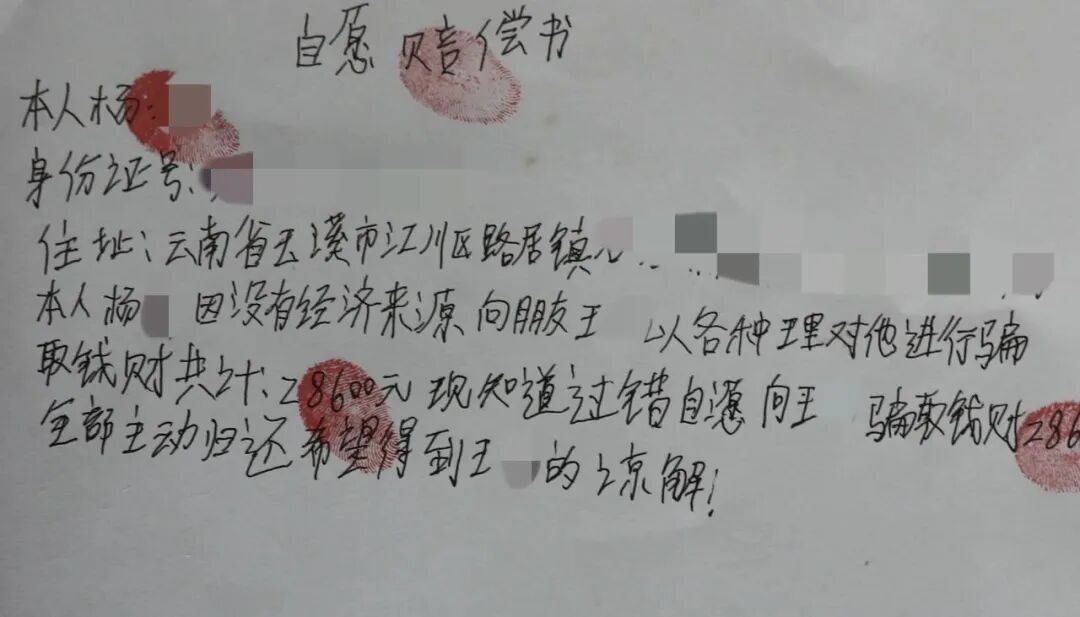 自愿赔偿书
本人杨:
身份证号:
住址:云南省玉溪市江川区路居镇
本人杨 因没有经济来源向朋友王 以各种理对他进行骗
取钱财共计:28600元现知道过错自愿向王 骗取钱财286
全部主动归还希望得到王 的谅解!